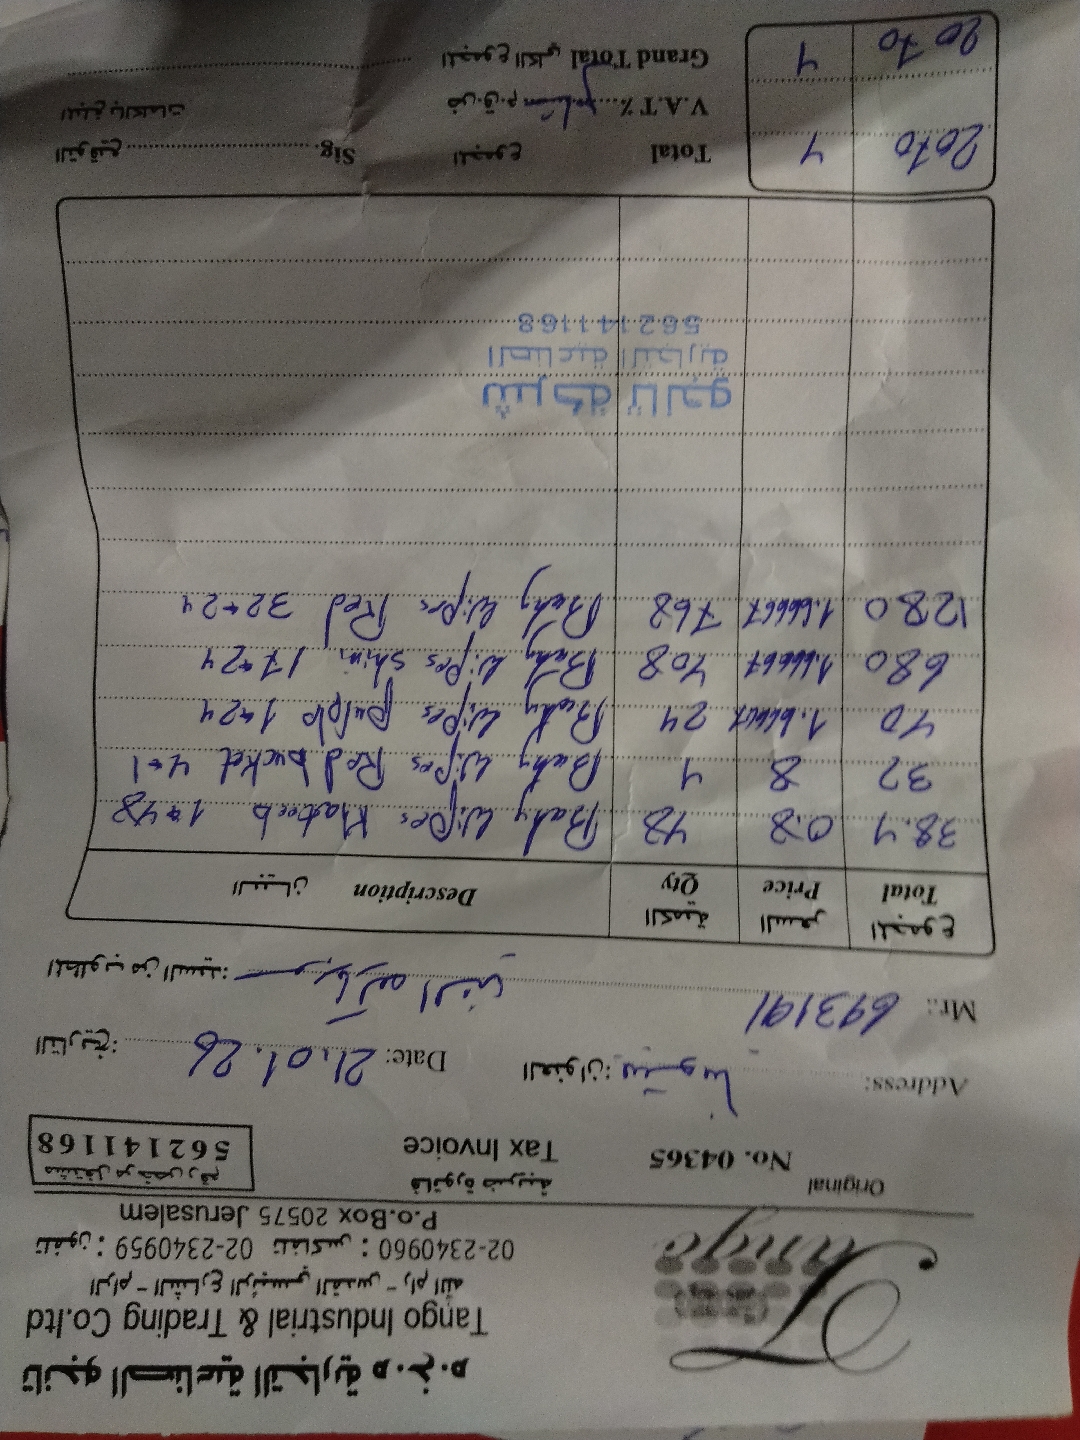 تانجو الصناعية التجارية م.خ.م
Tango Industrial & Trading Co.ltd
الرام - الشارع الرئيسي القدس - رام الله
تلفون : 02-2340959 تلفاكس : 02-2340960
P.o.Box 20575 Jerusalem
Tango
Original
فاتورة ضريبية
مشتغل مرخص رقم
No. 04365
Tax Invoice
562141168
Address:
العنوان:
Date: 21.01.26
التاريخ:
Mr.: 693191
المطلوب من السيد:
المجموع السعر الكمية البيان
Total Price Qty Description
38.4 0.8 48 Baby Wipes 1*48
32 8 4 Baby Wipes Red bucket 4*1
40 1.66667 24 Baby Wipes 1*24
680 1.66667 408 Baby Wipes 17*24
1280 1.66667 768 Baby Wipes Red 32*24
شركة تانجو
الصناعية التجارية
562141168
2070 4 Total المجموع Sig. التوقيع
V.A.T % ض.ق.م المبلغ بالكلمات
2070 4 Grand Total المجموع الكلي